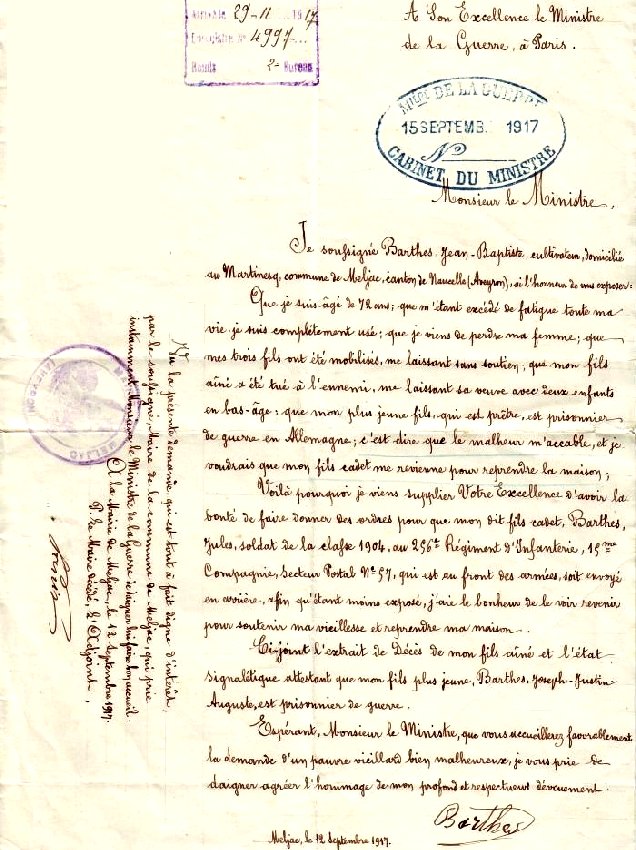 Arrivée 29-11 1917
Enregistré N° 4997
2e Bureau
A Son Excellence le Ministre
de la Guerre, à Paris.
MIN DE LA GUERRE
15 SEPTEMB. 1917
N°
CABINET DU MINISTRE
Monsieur le Ministre,
Je soussigné Barthes, Jean-Baptiste cultivateur, domicilié
au Martinesq, commune de Meljac, canton de Naucelle (Aveyron), ai l'honneur de vous exposer:
Que je suis âgé de 72 ans; que m'étant excédé de fatigue toute ma
vie je suis complètement usé; que je viens de perdre ma femme; que
mes trois fils ont été mobilisés, me laissant sans soutien; que mon fils
aîné a été tué à l'ennemi, me laissant sa veuve avec deux enfants
en bas-âge; que mon plus jeune fils, qui est prêtre, est prisonnier
de guerre en Allemagne; c'est dire que le malheur m'accable, et je
voudrais que mon fils cadet me revienne pour reprendre la maison;
Voilà pourquoi je viens supplier Votre Excellence d'avoir la
bonté de faire donner des ordres pour que mon dit fils cadet, Barthes,
Jules, soldat de la classe 1904, au 256e Régiment d'Infanterie, 15me
Compagnie, Secteur Postal N° 57, qui est au front des armées, soit envoyé
en arrière, afin qu'étant moins exposé, j'aie le bonheur de le voir revenir
pour soutenir ma vieillesse et reprendre ma maison.
Ci-joint l'extrait de Décès de mon fils aîné et l'état
signalétique attestant que mon fils plus jeune, Barthes, Joseph-Justin
Auguste, est prisonnier de guerre.
Espérant, Monsieur le Ministre, que vous accueillerez favorablement
la demande d'un pauvre vieillard bien malheureux, je vous prie de
daigner agréer l'hommage de mon profond et respectueux dévouement.
Barthes
Meljac, le 12 Septembre 1917.
Vu la présente demande qui est tout à fait digne d'intérêt,
par le soussigné, Maire de la commune de Meljac, qui prie
instamment Monsieur le Ministre de la Guerre de daigner lui faire bon accueil.
A la Mairie de Meljac, le 12 Septembre 1917.
P. le Maire décédé, l'Adjoint,